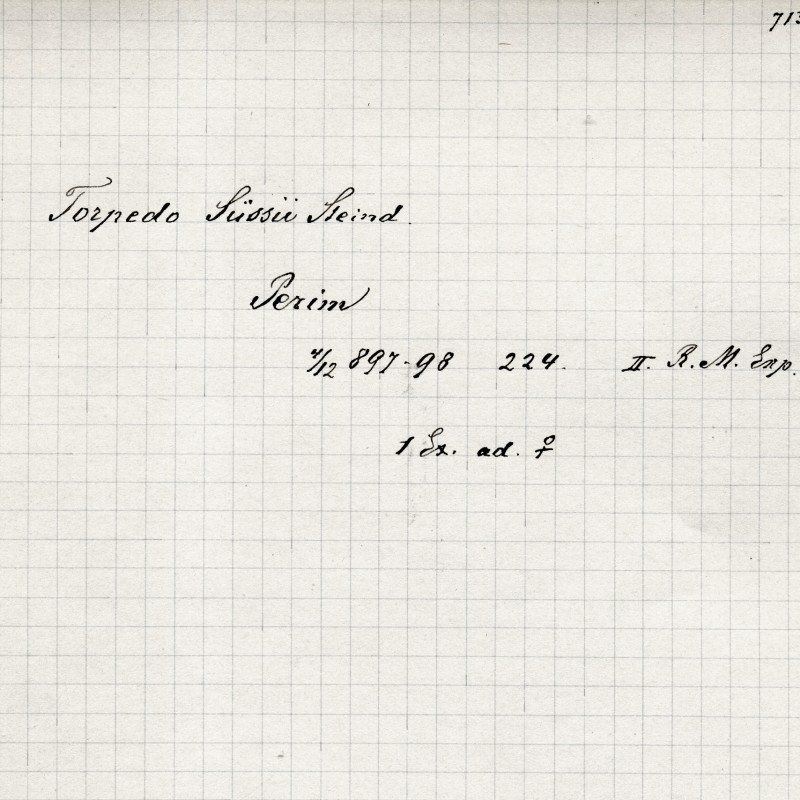 713
Torpedo Süssii Steind.
Perim
4/12 897-98 224. II. R. M. Exp.
1 Ex. ad. ♀